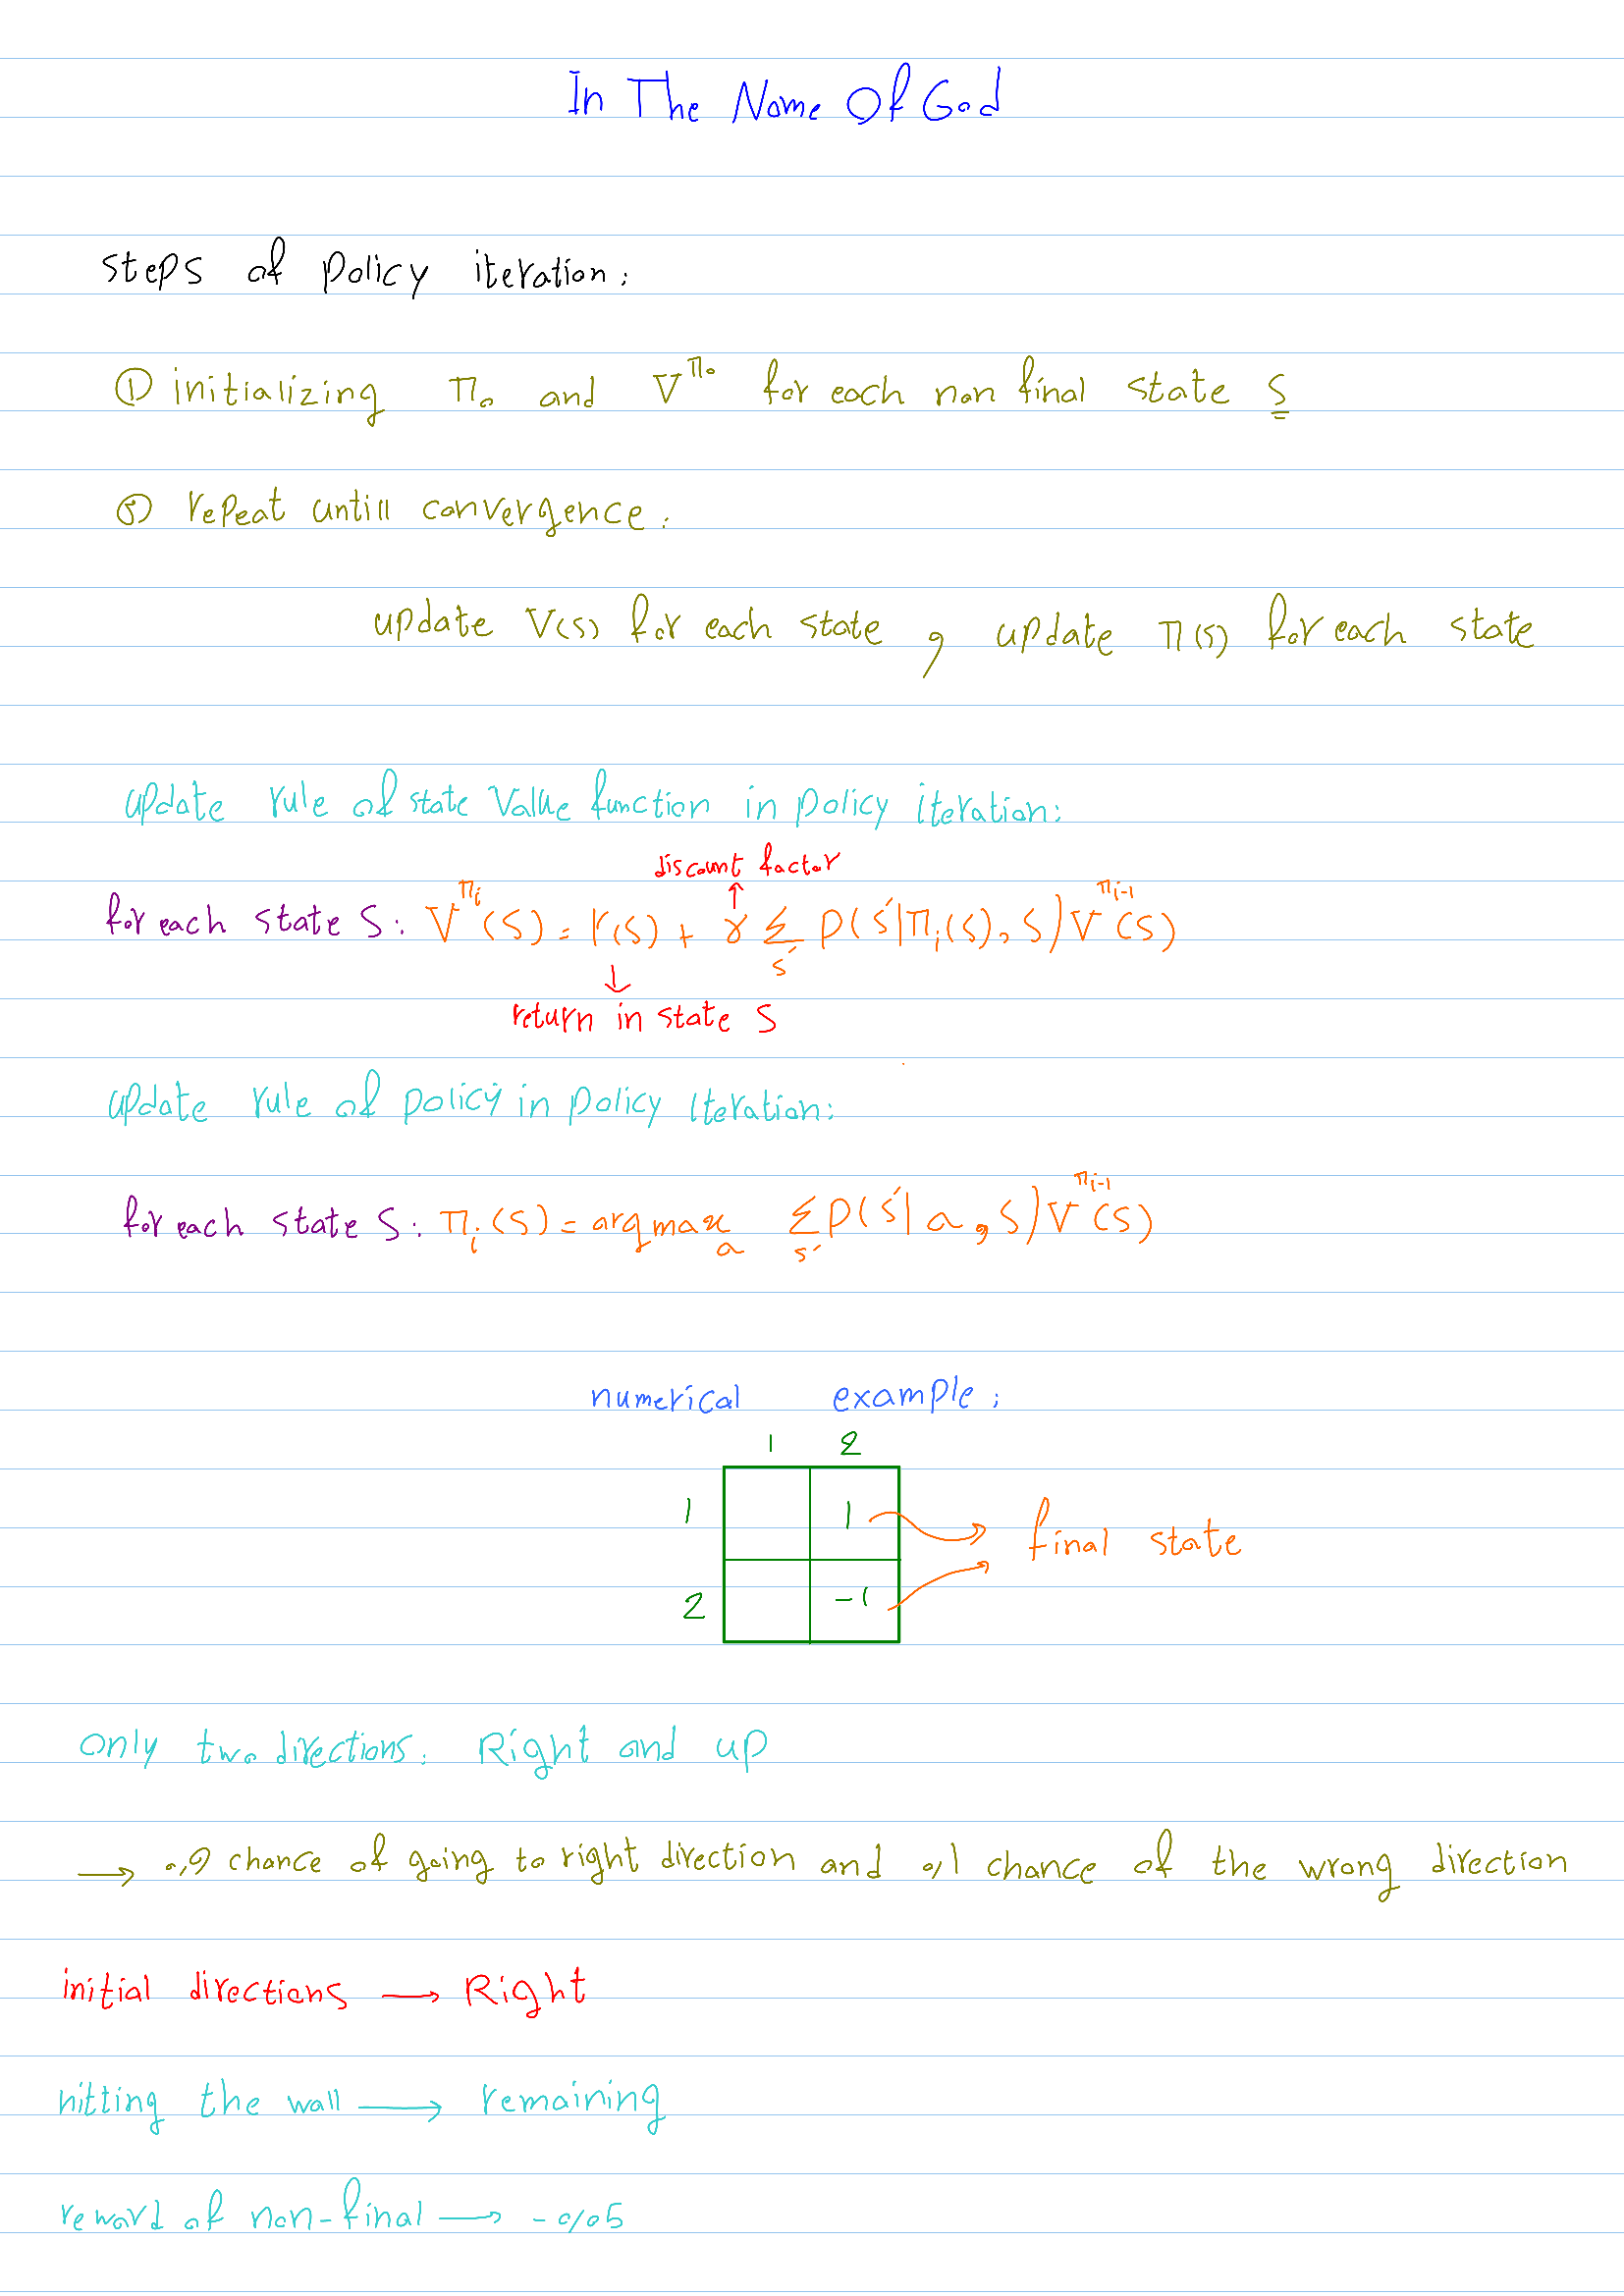 In The Name Of God
steps of policy iteration:
① initializing π₀ and V^π₀ for each non final state S
② repeat untill convergence:
update V(s) for each state , update π(s) for each state
update rule of state value function in policy iteration:
discount factor
↑
for each state S: V^πᵢ(S) = r(S) + γ Σ_s′ P(s′|πᵢ(s), S) V^πᵢ₋₁(S)
↓
return in state S
update rule of policy in policy iteration:
for each state S: πᵢ(S) = argmax_a Σ_s′ P(s′| a, S) V^πᵢ₋₁(S)
numerical example:
1 2
1 1 → final state
2 -1
Only two directions: Right and up
→ 0,9 chance of going to right direction and 0,1 chance of the wrong direction
initial directions → Right
hitting the wall → remaining
reward of non-final → -0/05